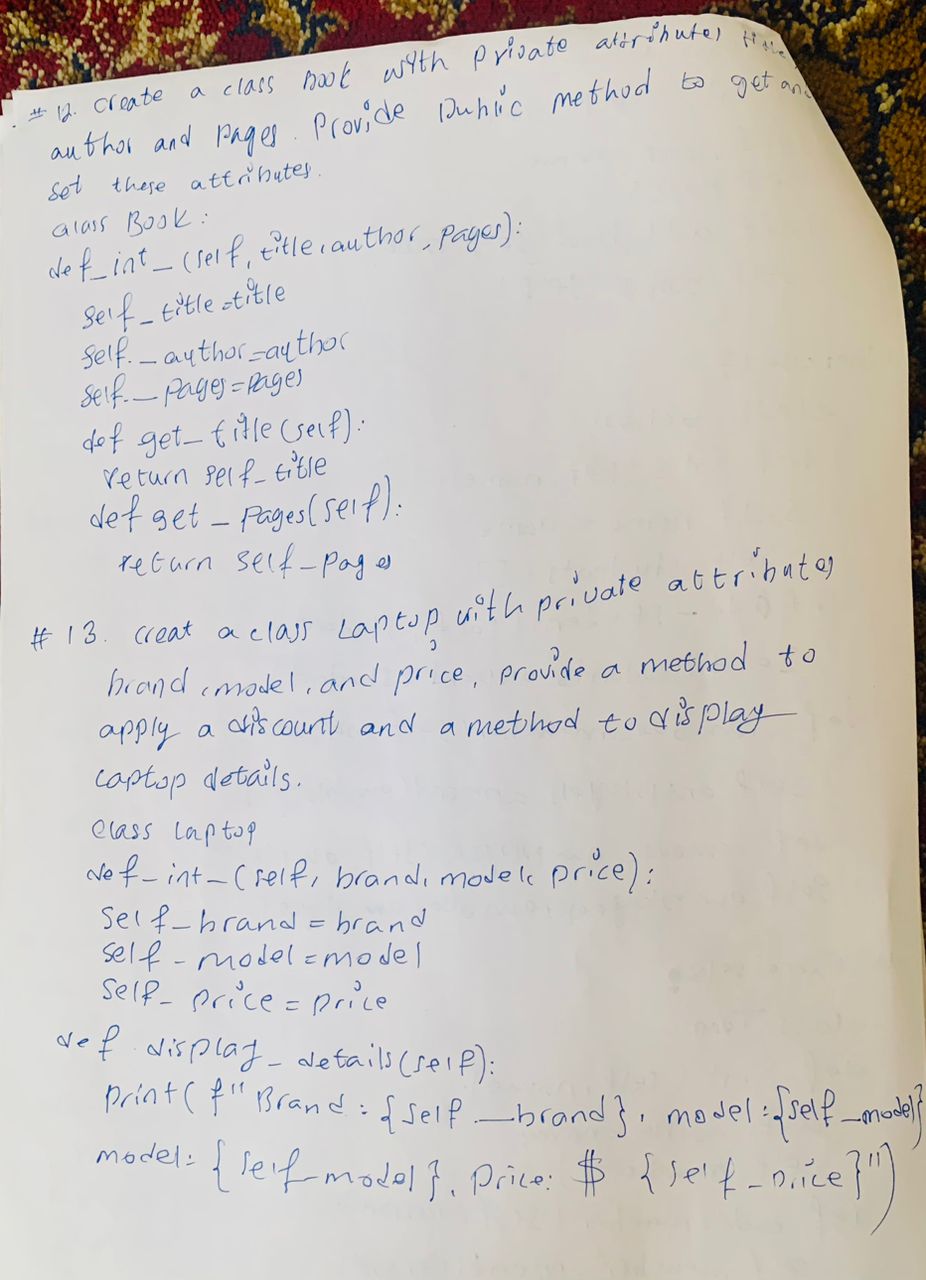 # 12. Create a class Book with private attributes title
author and pages. Provide Public method to get and
set these attributes.
class Book:
def_int_(self, title, author, pages):
self_title=title
self._author=author
self._pages=pages
def get_title(self):
return self_title
def get_pages(self):
return self_pages
# 13. creat a class Laptop with private attributes
brand, model, and price, provide a method to
apply a discount and a method to display
laptop details.
class laptop
def_int_(self, brand, model, price):
self_brand = brand
self_model = model
self_price = price
def display_details(self):
print(f"Brand: {self._brand}, model:{self_model}
model: {self_model}, Price: $ {self_price}")